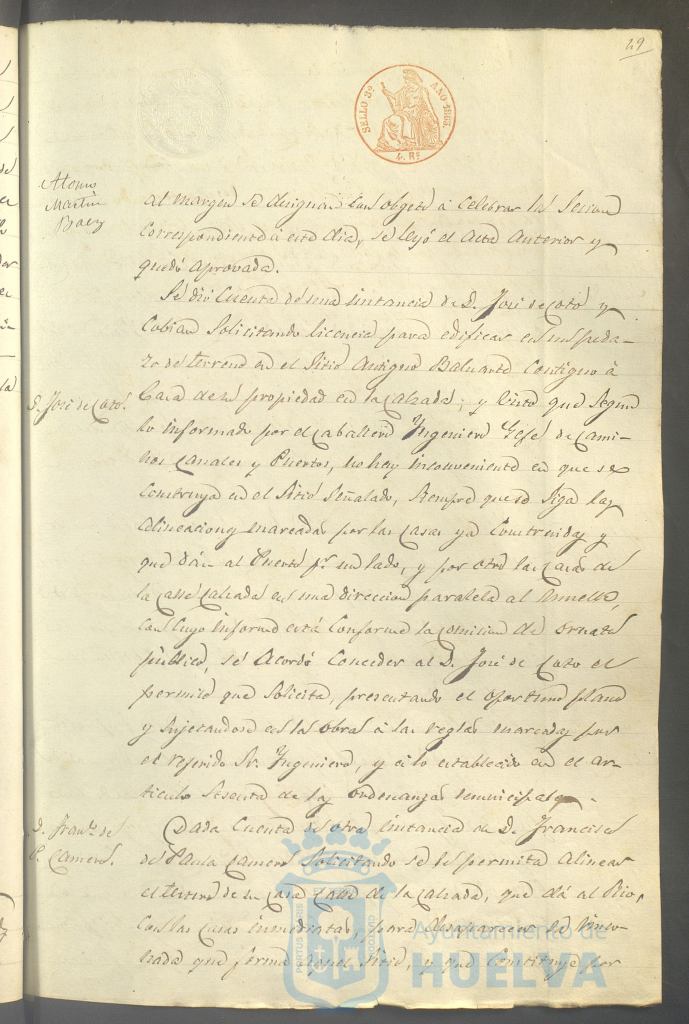 49
SELLO 3º AÑO 1863.
4 Rs
Alonso
Martin
Baez
al margen se designan con objeto a celebrar la Sesion
correspondiente á este dia, se leyó el Acta Anterior y
quedó aprovada.
Se dió Cuenta de una instancia de D. José de Coto y
Cobian Solicitando licencia para edificar en un peda-
zo de terreno en el Sitio Antiguo Baluarte Contiguo á
D. José de Coto.
Casa de su propiedad en la Calzada; y Visto que Segun
lo informado por el Caballero Yngeniero Gefe de Cami-
nos Canales y Puertos, no hay inconveniente en que se
Construya en el Sitio Señalado, Siempre que se Siga las
Alineaciones marcadas por las Casas ya Construidas y
que dán al Puerto pr. un lado, y por otro las Casas de
la Calle Calzada en una direccion paralela al Muelle,
con Cuyo informe está Conforme la Comision de Ornato
público, se Acordó Conceder al D. José de Coto el
permiso que Solicita, presentando el oportuno plano
y Sujetandose en las obras a las reglas marcadas por
el referido Sr. Yngeniero, y a lo establecido en el Ar-
ticulo Sesenta de las ordenanzas municipales.
D. Franco. de
P. Camero.
Dada Cuenta de otra instancia de D. Francisco
de Paula Camero Solicitando se le permita Alinear
el terreno de su Casa Calle de la Calzada, que dá al Rio,
con las Casas inmediatas, para desaparecer la
que forma Aquel Sitio, y que Constituye por
PORTUS MARIS
Ayuntamiento de
HUELVA